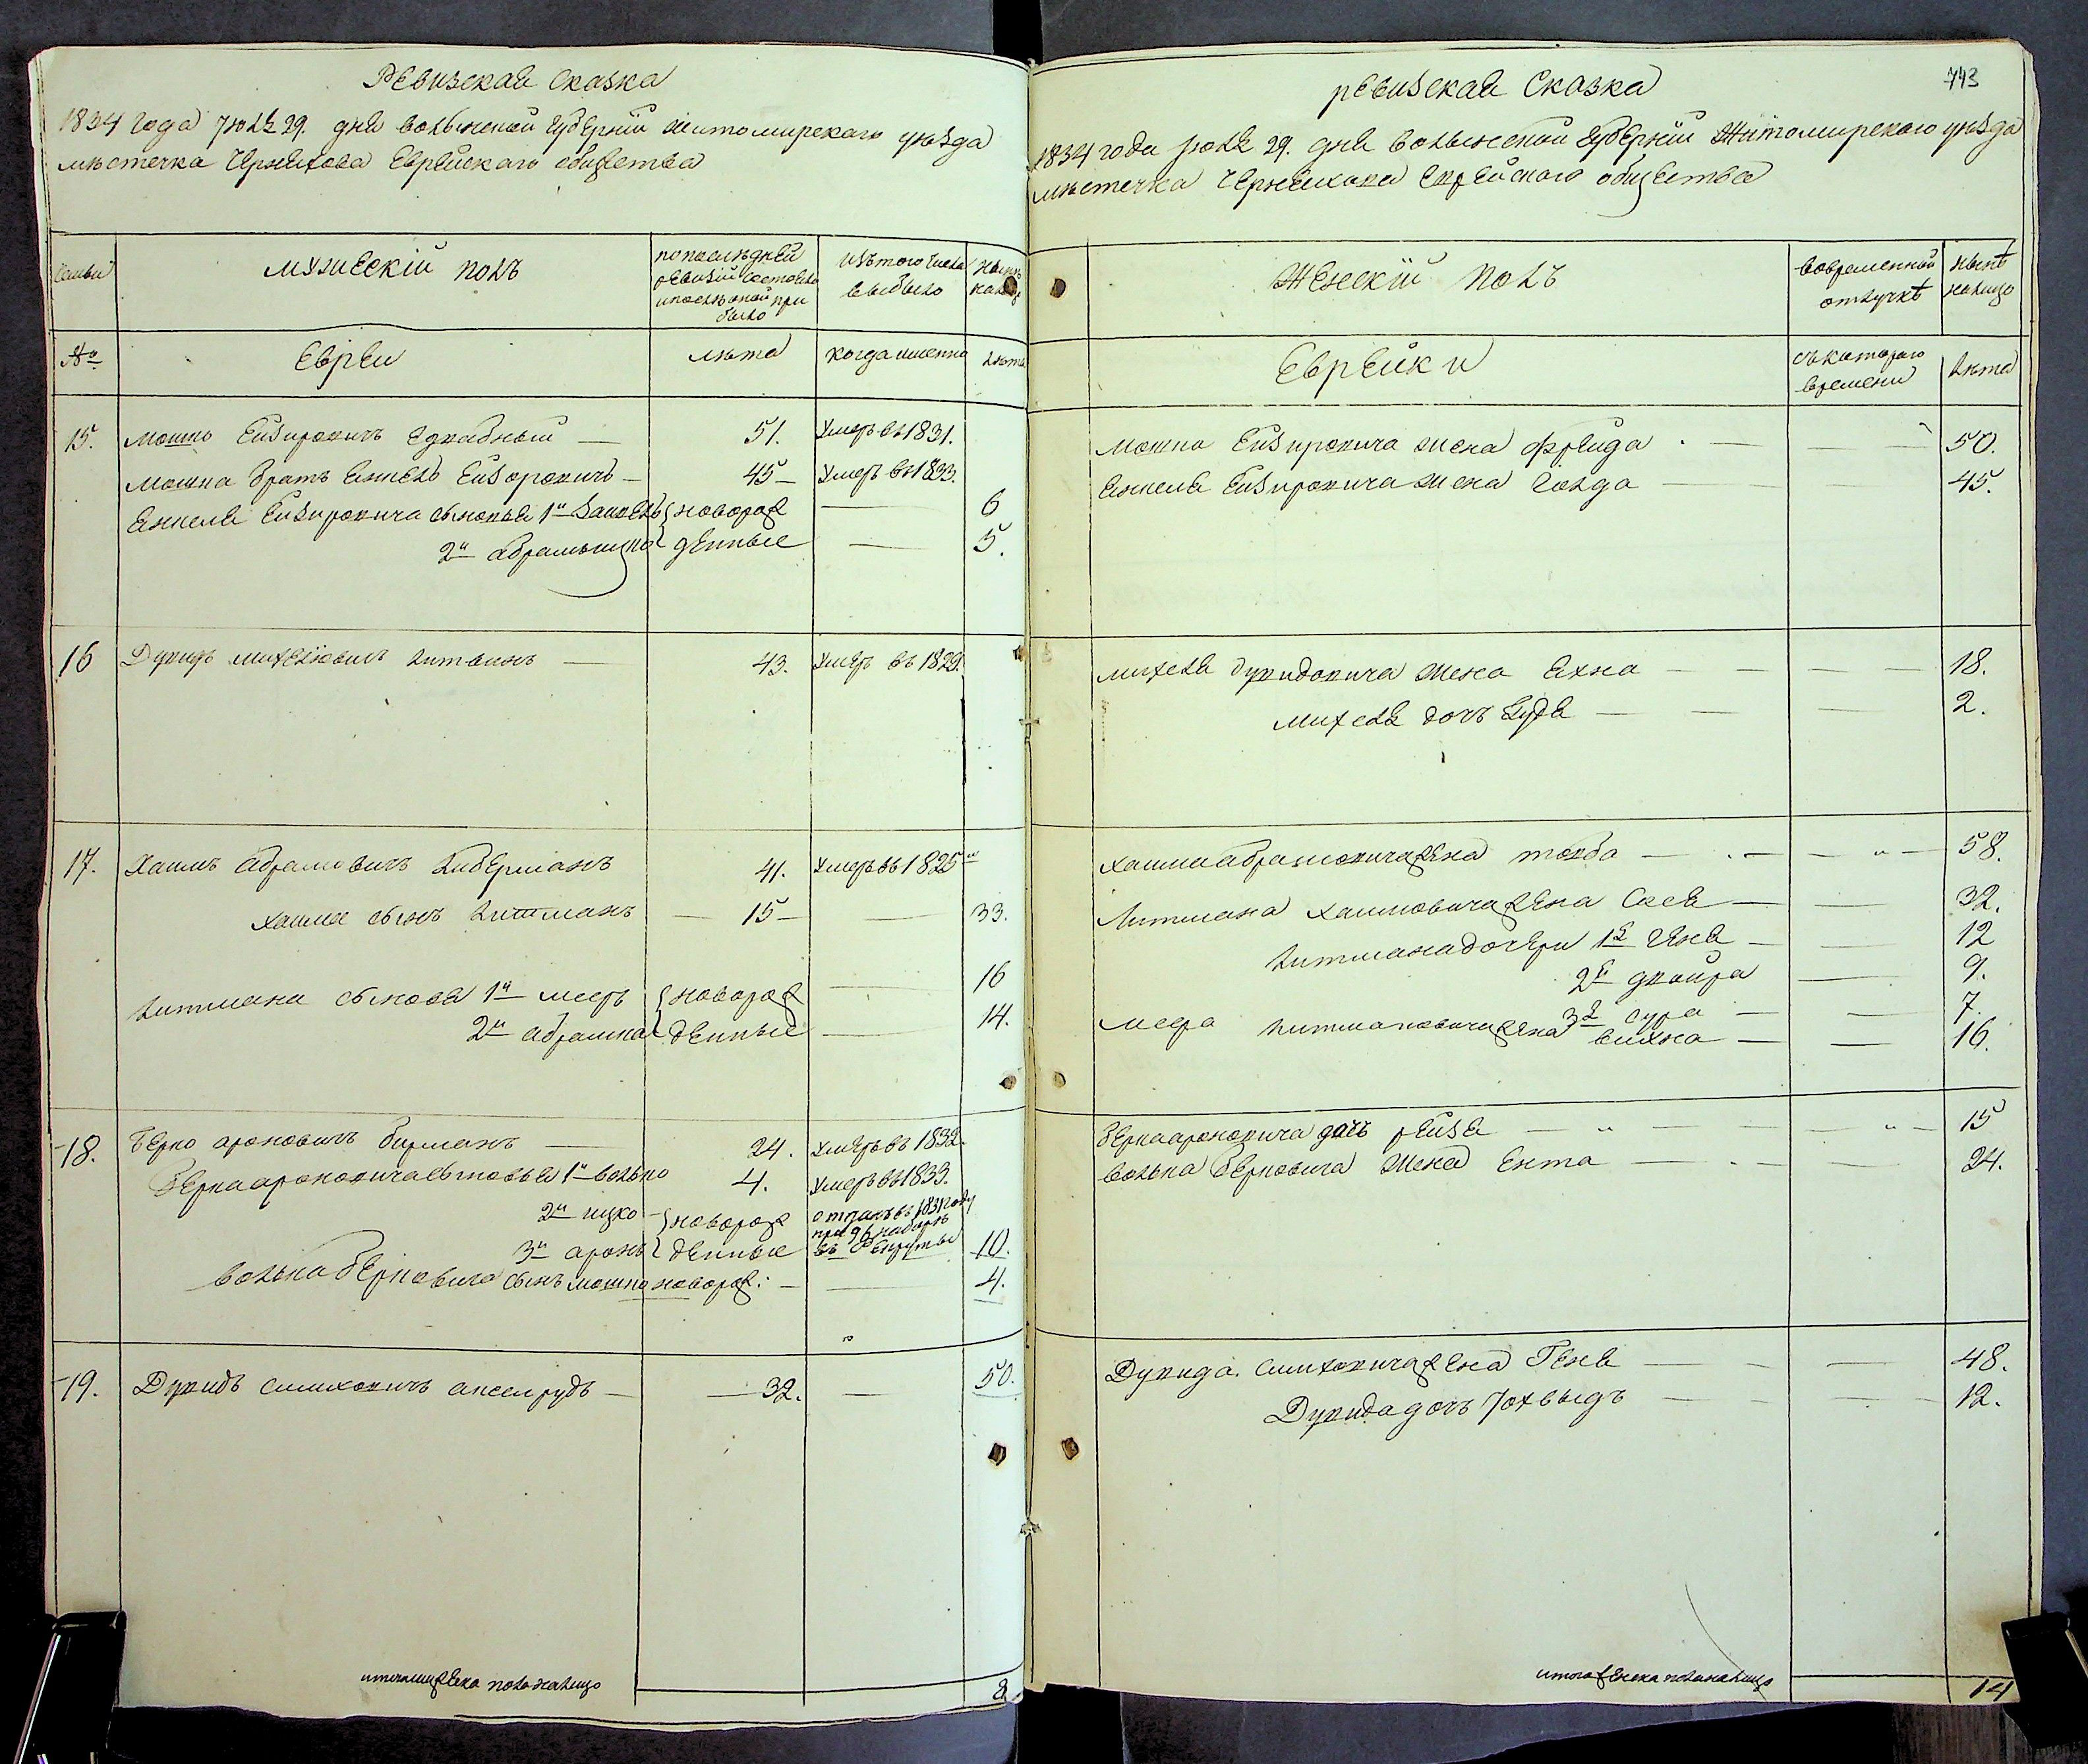 Ревизская сказка
1834 года Іюля 29. дня волынской губерніи житомирскаго уѣзда
мѣстечка Черняхова Еврейскаго общества
Семьи
мужескій полъ
по послѣдней
ревизіи состояло
и послѣ оной при
было
изъ того числа
выбыло
№
Евреи
лѣта
когда именно
лѣта
15. мошко Ейзировичъ 51. умеръ въ 1831.
мошка братъ Янкель Ейзоровичъ 45 умеръ въ 1833.
Янкеля Ейзировича сыновья 1й новорож 6
2й абрамъ денные 5.
16 Дувидъ михелювичъ литвинъ 43. умеръ въ 1829.
17. Хаимъ абрамовичъ либерманъ 41. умеръ въ 1825
хаима сынъ литманъ 15 33.
литмана сыновья 1й мееръ новорож 16
2й абрашка денные 14.
18. Берко ароновичъ бирманъ 24. умеръ въ 1832.
Берка ароновича сыновья 1й волько 4. умеръ въ 1833.
2й ицко новорож отданъ въ 1831 году
при 96 наборѣ
3й аронъ денные въ Рекруты 10.
волька Берковича сынъ мошко новорож: 4.
19. Дувидъ симховичъ аксельрудъ 32. 50.
итого мужеска пола налицо
8
ревизская Сказка
743
1834 года Іюля 29. дня волынской губерніи Житомирскаго уѣзда
мѣстечка Черняхова Еврейского общества
Женскій полъ
во временной
отлучкѣ
нынѣ
налицо
Еврейки
съ котораго
времени
лѣта
мошка Ейзировича жена Фрейда 50.
Янкеля Ейзировича жена Голда 45.
михеля дувидовича жена Яхна 18.
михеля дочь 2.
хаима абрамовича жена товба 58.
литмана хаимовича жена Сося 32.
литмана дочери 1я Геня 12
2я двойра 9.
3я сура 7.
меера литмановича жена вихна 16.
Берка ароновича дочь рейзя 15
волька Берковича жена Ента 24.
Дувида симховича жена Геня 48.
Дувида дочь Іохвыдъ 12.
итого женска пола налицо
14